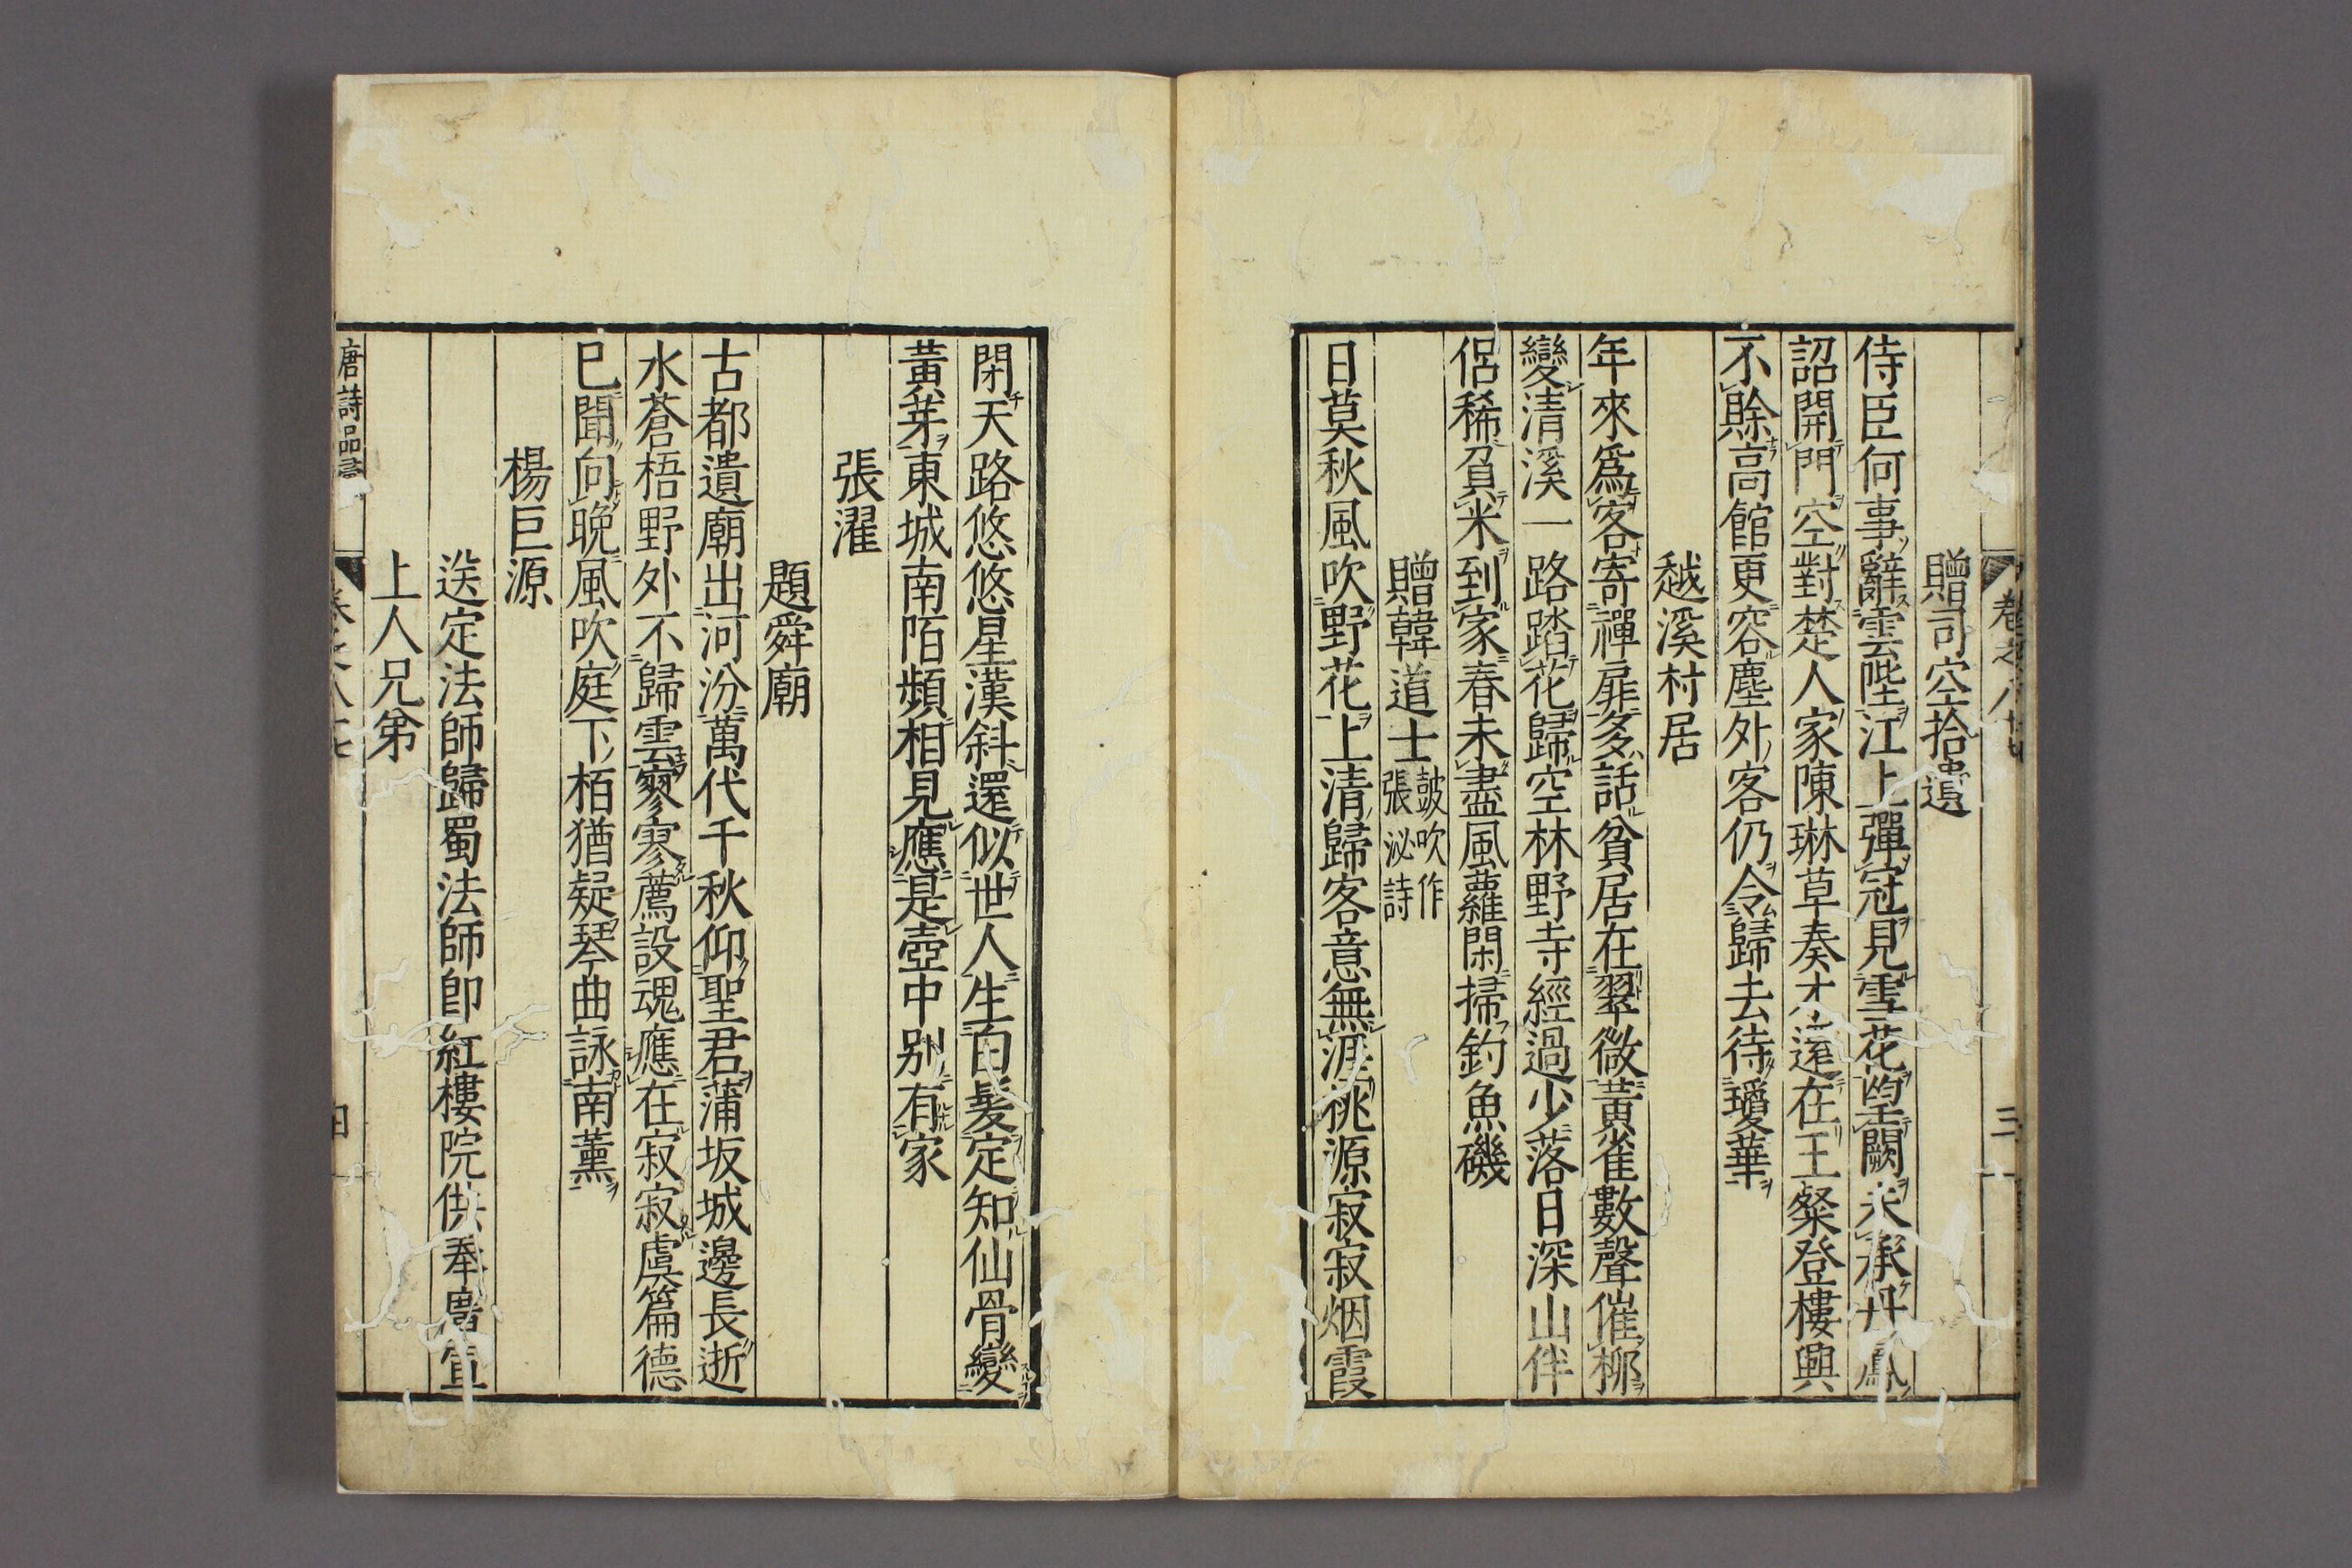 卷之八十七
三
贈司空拾遺
侍臣何事辭雲陛江上彈冠見雪花望闕未承丹鳳
詔開門空對楚人家陳琳草奏才還在王粲登樓興
不賖高館更容塵外客仍令歸去待瓊華
越溪村居
年來爲客寄禪扉多話貧居在翠微黃雀數聲催柳
變清溪一路踏花歸空林野寺經過少落日深山伴
侶稀負米到家春未盡風蘿閑掃釣魚磯
贈韓道士皷吹作張泌詩
日莫秋風吹野花上清歸客意無涯桃源寂寂烟霞
閉天路悠悠星漢斜還似世人生白髮定知仙骨變
黃芽東城南陌頻相見應是壺中別有家
張濯
題舜廟
古都遺廟出河汾萬代千秋仰聖君蒲坂城邊長逝
水蒼梧野外不歸雲寥寥薦設魂應在寂寂虞篇德
已聞向晚風吹庭下栢猶疑琴曲詠南薰
楊巨源
送定法師歸蜀法師卽紅樓院供奉廣宣
上人兄弟
唐詩品
卷之八十七